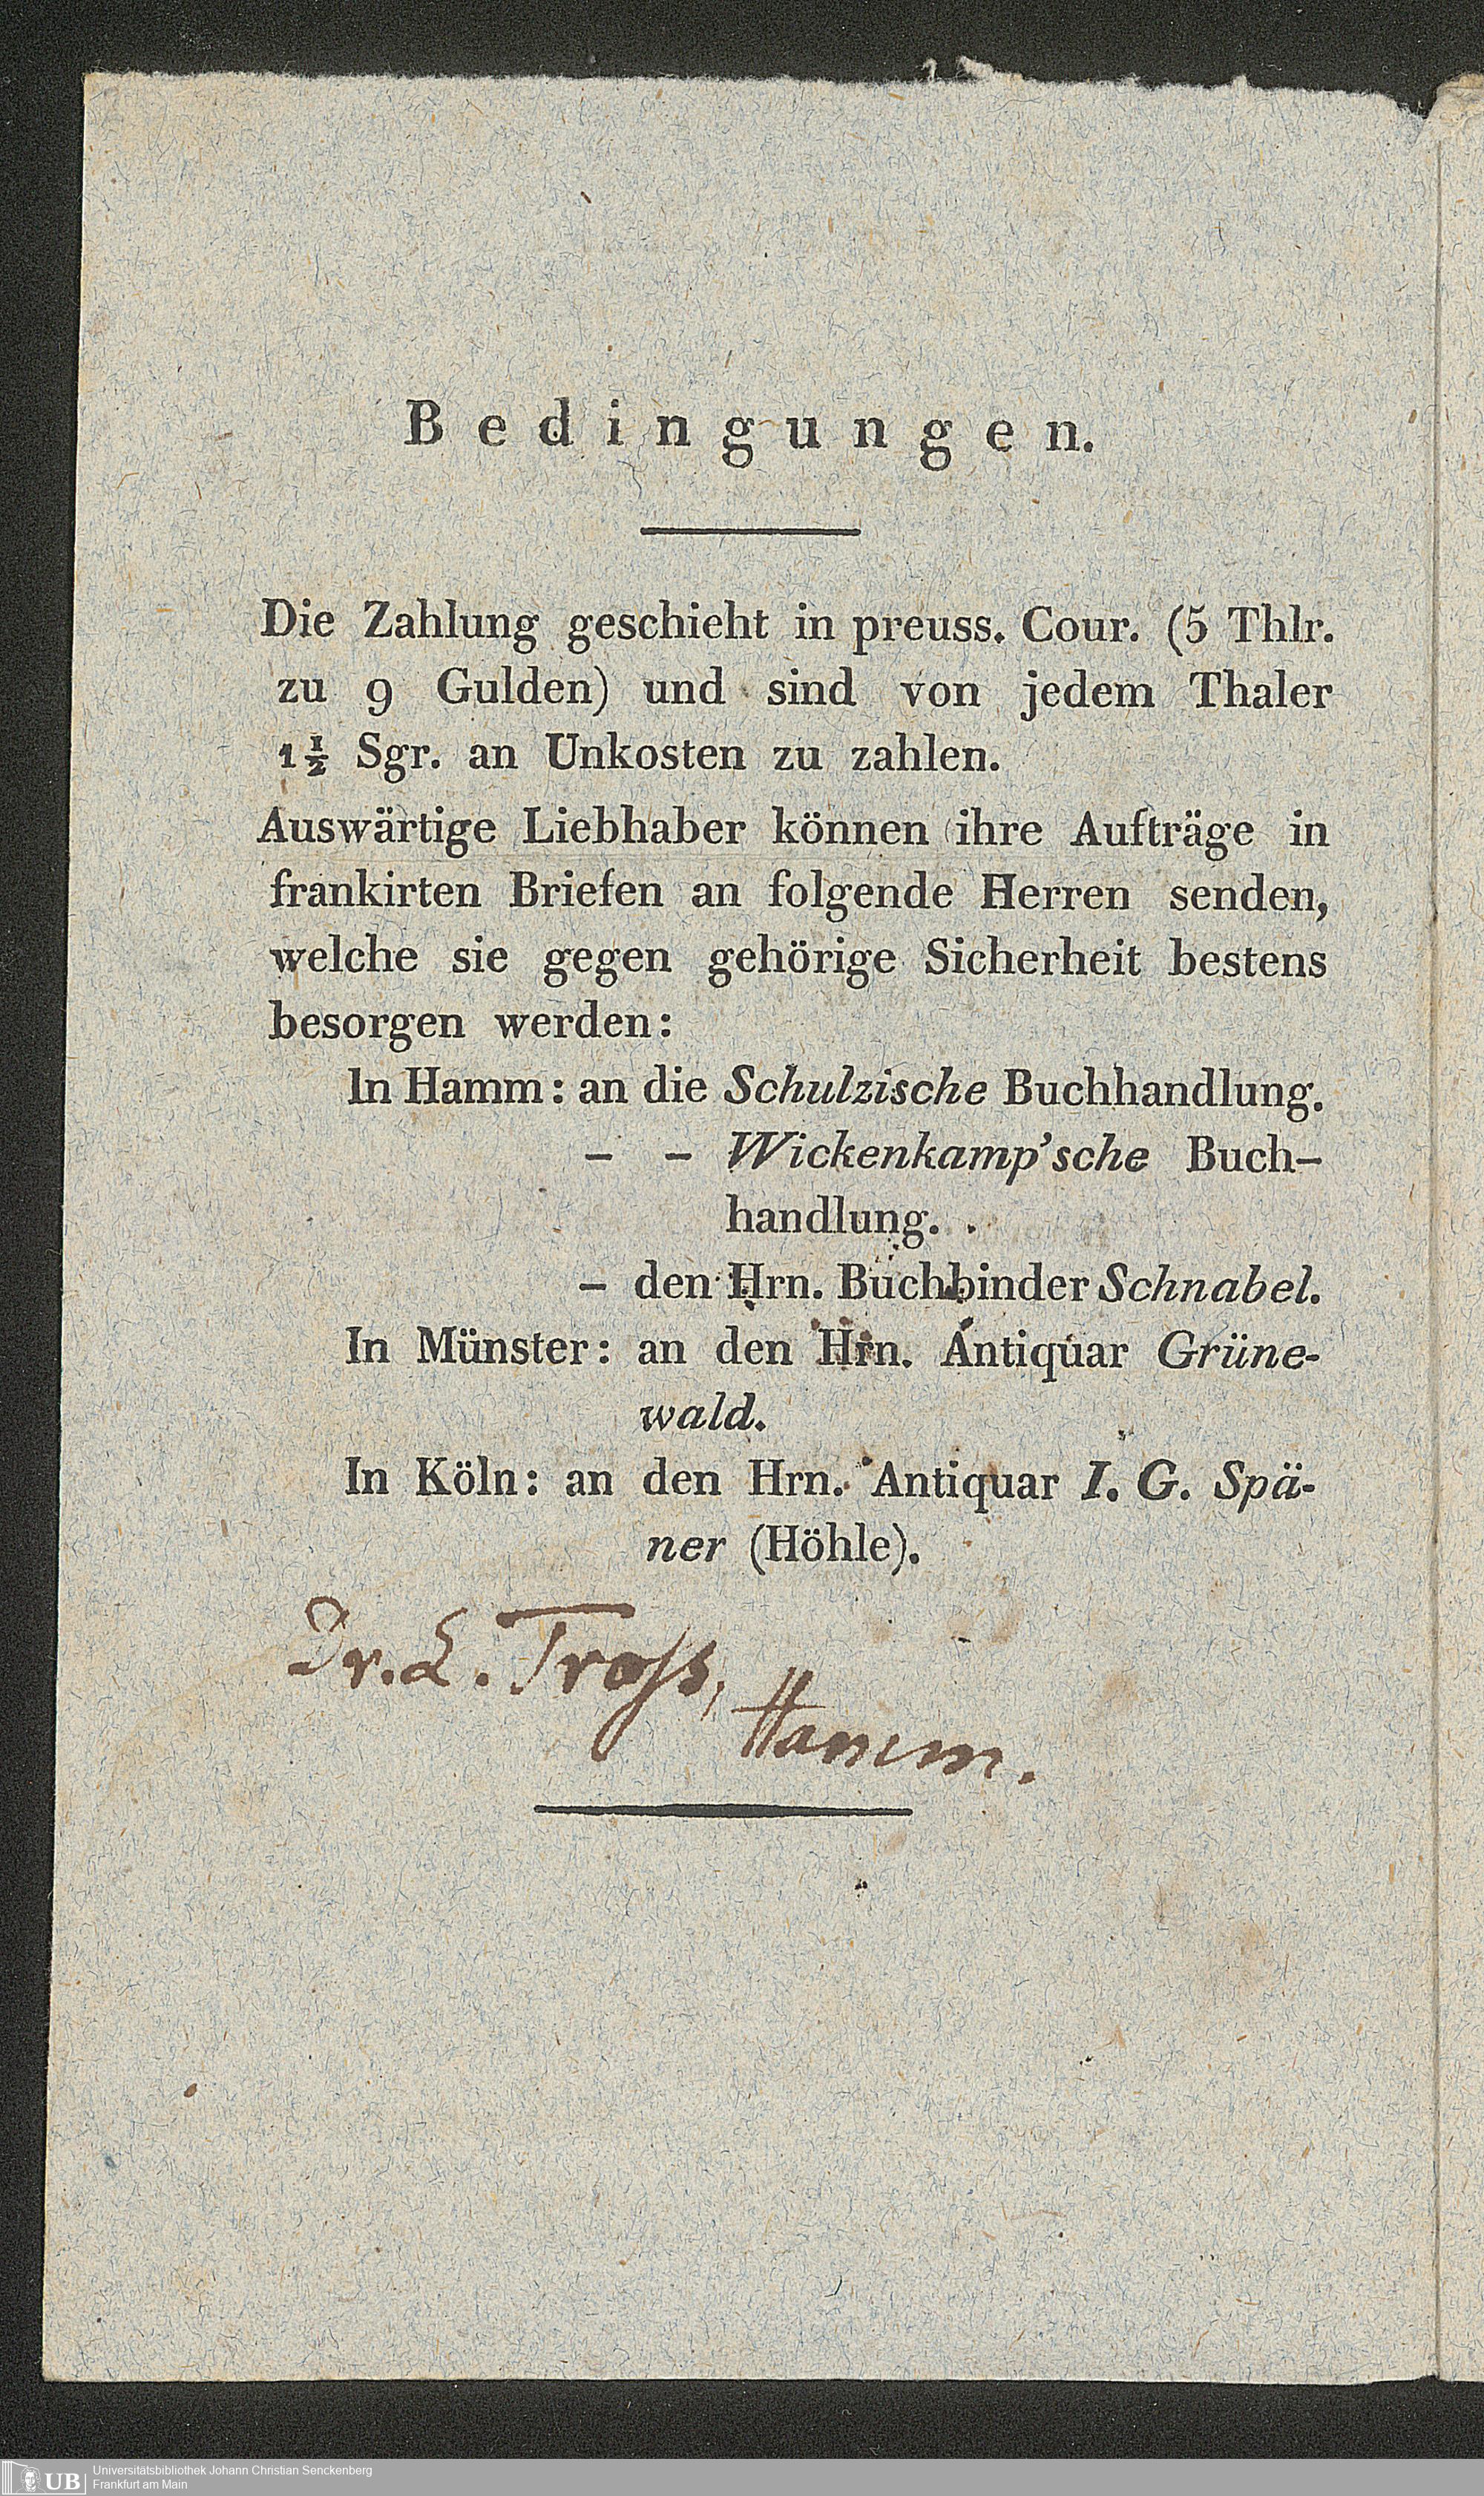 Bedingungen.
Die Zahlung geschieht in preuss. Cour. (5 Thlr.
zu 9 Gulden) und sind von jedem Thaler
1½ Sgr. an Unkosten zu zahlen.
Auswärtige Liebhaber können ihre Aufträge in
frankirten Briefen an folgende Herren senden,
welche sie gegen gehörige Sicherheit bestens
besorgen werden:
In Hamm: an die Schulzische Buchhandlung.
– – Wickenkamp'sche Buch-
handlung.
– den Hrn. Buchbinder Schnabel.
In Münster: an den Hrn. Antiquar Grüne-
wald.
In Köln: an den Hrn. Antiquar I. G. Spä-
ner (Höhle).
Dr. L. Troſs,
Hamm.
UB
Universitätsbibliothek Johann Christian Senckenberg
Frankfurt am Main